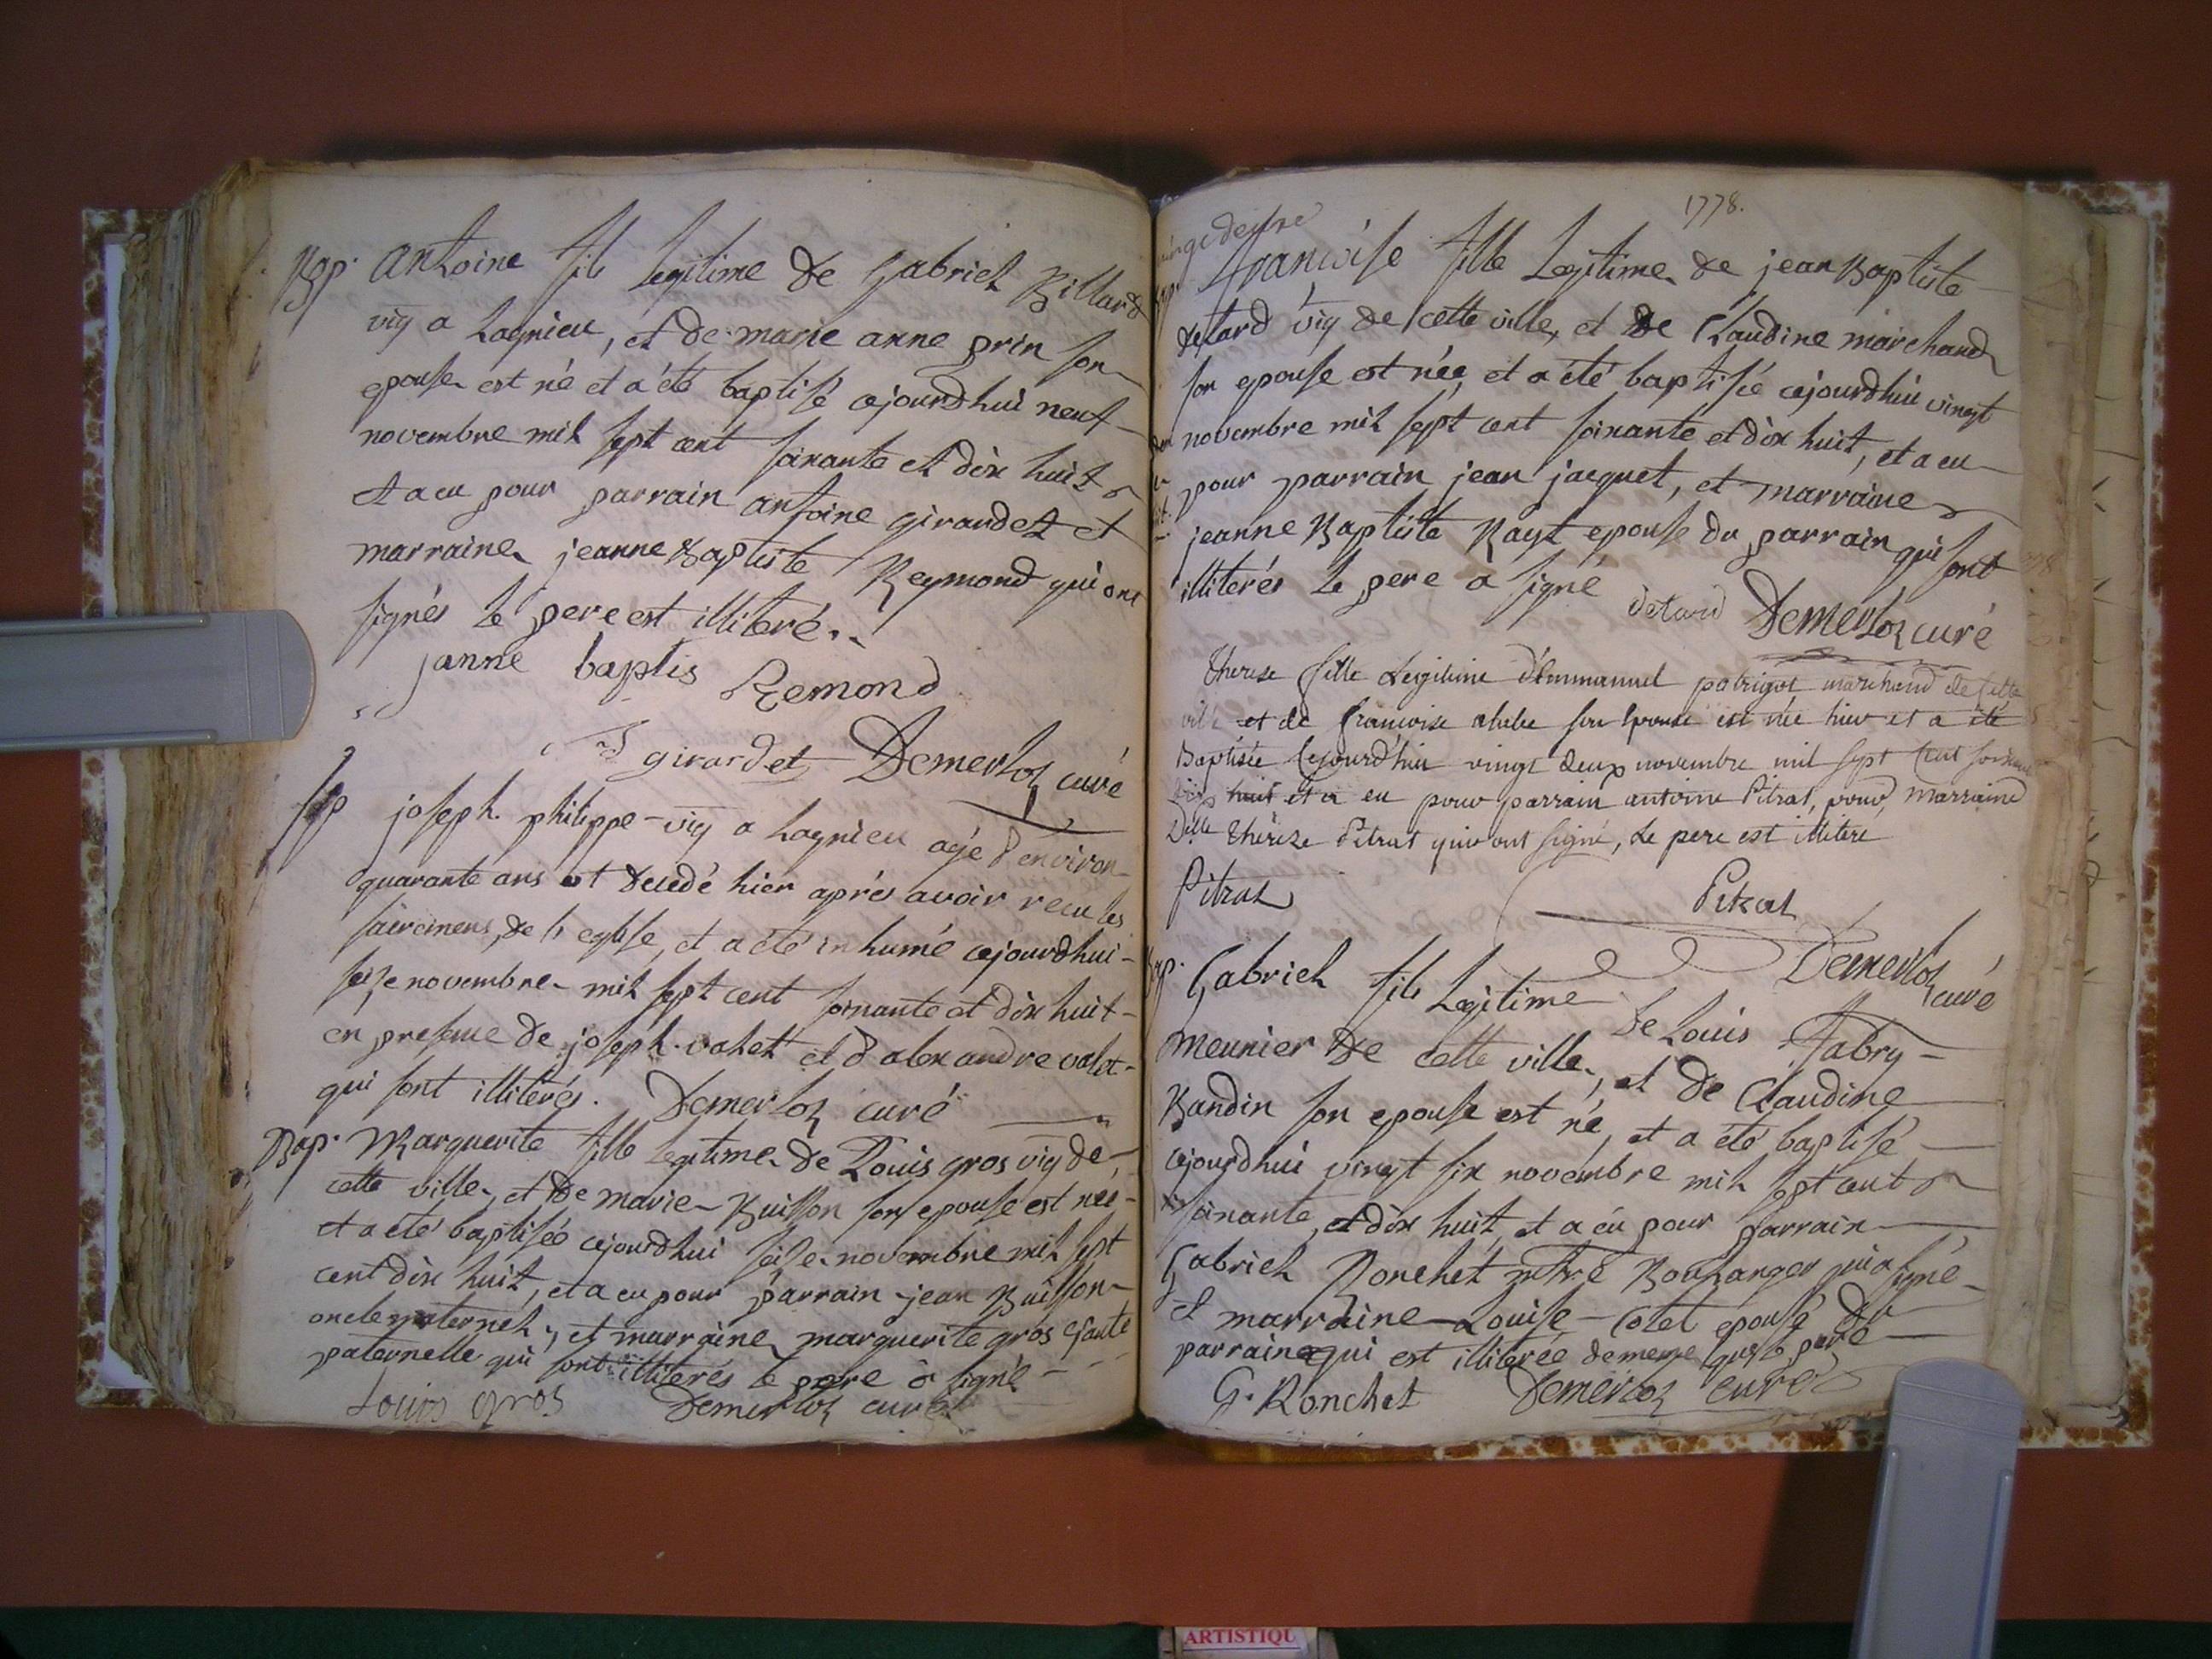 Bap. Antoine fils legitime de Gabriel Billard
vig a Lagnieu, et de marie anne prin son
epouse est né et a été baptisé cejourdhui neuf
novembre mil sept cent soixante et dix huit
et a eu pour parrain antoine girardet et
marraine jeanne Baptiste Reymond qui ont
signés le pere est illiteré..
janne baptis Remond
girardet Demerloz curé
Sep joseph philippe vig a lagnieu agé d'environ
quarante ans est decedé hier aprés avoir recu les
sacremens de l'eglise, et a été inhumé cejourdhui
seize novembre mil sept cent soixante et dix huit
en presence de joseph valet et d'alexandre valet
qui sont illiterés. Demerloz curé
Bap. Marguerite fille legitime de Louis gros vig de
cette ville, et de marie Buisson son epouse est née
et a été baptisée cejourdhui seize novembre mil sept
cent dix huit, et a eu pour parrain jean Buisson
oncle maternel, et marraine marguerite gros tante
paternelle qui sont illiterés le pere a signé
Louis gros Demerloz curé
1778.
françoise fille Legitime de jean Baptiste
detard vig de cette ville, et de Claudine marchand
son epouse est née, et a été baptisée cejourdhui vingt
novembre mil sept cent soixante et dix huit, et a eu
pour parrain jean jacquet, et marraine
jeanne Baptiste Rayt epouse du parrain qui sont
illiterés le pere a signé
detard Demerloz curé
Therese fille Legitime d'Emmanuel patrigot marchand de cette
ville et de françoise son epouse est née hier et a été
Baptisée Cejourd'hui vingt deux novembre mil sept Cent soixante
dix huit et a eu pour parrain antoine Pitrat, pour marraine
Dlle Thérèse Pitrat qui ont signé, Le pere est illiteré
Pitrat Pitrat
Demerloz curé
Bap. Gabriel fils Legitime de Louis Fabry
meunier de cette ville, et de Claudine
Bandin son epouse est né, et a été baptisé
cejourdhui vingt six novembre mil sept cent
soixante, et dix huit, et a eu pour parrain
Gabriel Ronchet mtre Boulanger qui a signé
et marraine Louise Cotet epouse du
parrain qui est illiterée de meme que le pere
G. Ronchet Demerloz curé
ARTISTIQU